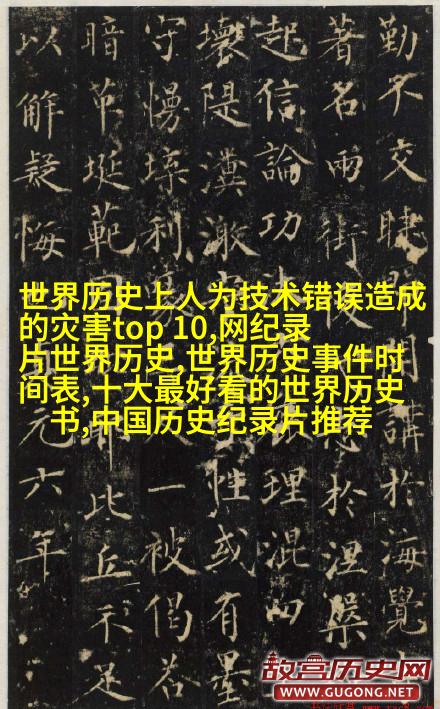 勤不交睫開講於海覺
著名兩街於涅槃
起信論功理混四
壞隄性或有墨
守慢利一被偈若
暗範此丘示足
以解疑悔元六年
世界历史上人为技术错误造成
的灾害top 10,网纪录
片世界历史,世界历史事件时
间表,十大最好看的世界历史
书,中国历史纪录片推荐
故宫历史网
WWW.GUGONG.NET